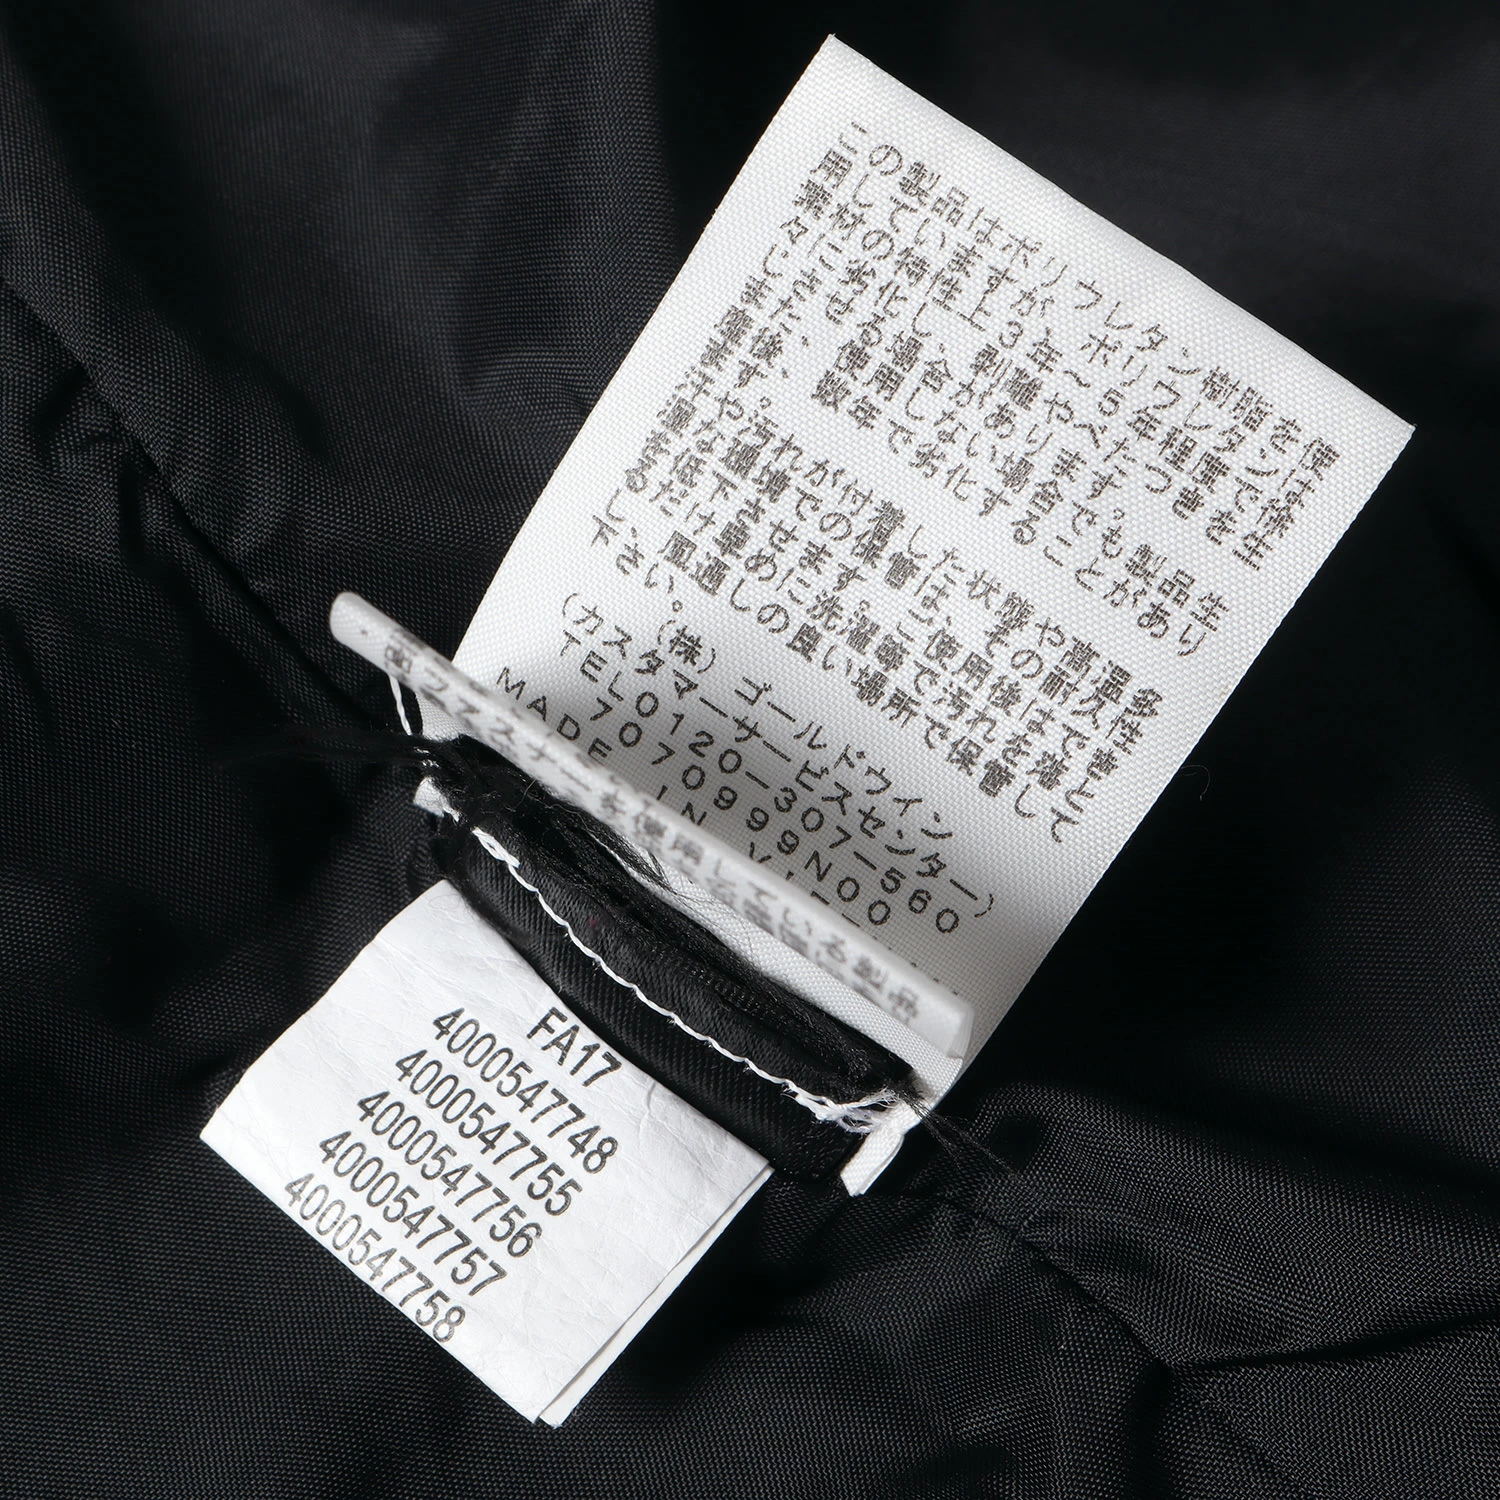 この製品はポリウレタン樹脂を使
用していますが、ポリウレタンは
素材の特性上3年～5年程度で生
々に劣化し、剥離やべたつきを生
じさせる場合があります。保
また、使用しない場合でも製品生
産後、数年で劣化することがあり
ます。
汗や汚れが付着した状態や高温多
湿な環境での保管は、この耐久性
を低下させます。ご使用後はできる
だけ早めに洗濯等で汚れを落とし
、風通しの良い場所で保管して
下さい。
(株)ゴールドウイン
(カスタマーサービスセンター)
TEL0120-307-560
7070999N00
MADE IN
ファスナーを使用している製品
FA17
4000547748
4000547755
4000547756
4000547757
4000547758